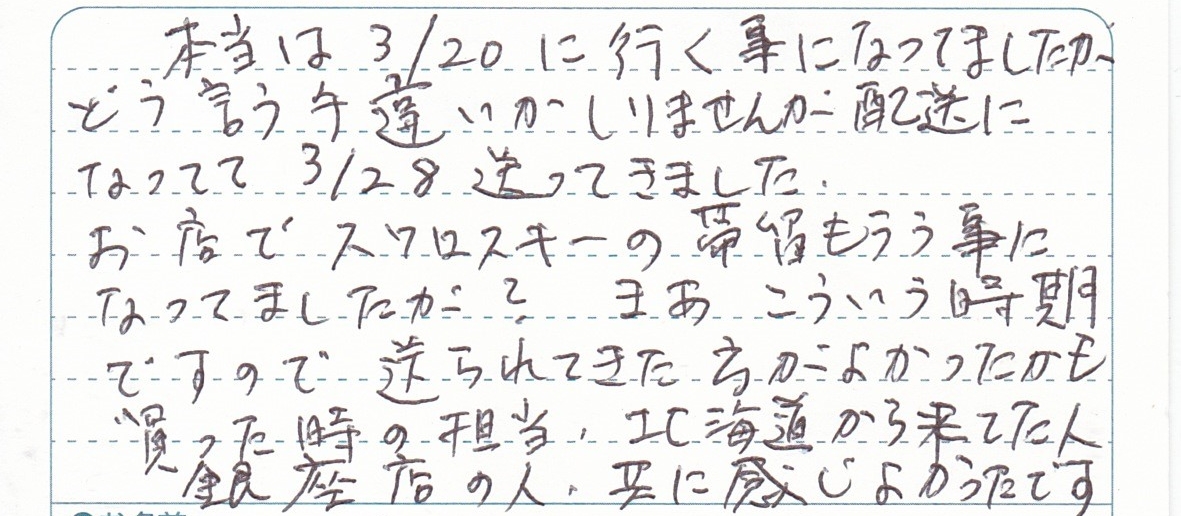 本当は 3/20 に行く事になってましたが
どう言う手違いかしりませんが配送に
なってて 3/28 送ってきました.
お店でスワロスキーの帯留もらう事に
なってましたが? まあ こういう時期
ですので送られてきた方がよかったかも
買った時の担当、北海道から来てた人
銀座店の人、共に感じよかったです